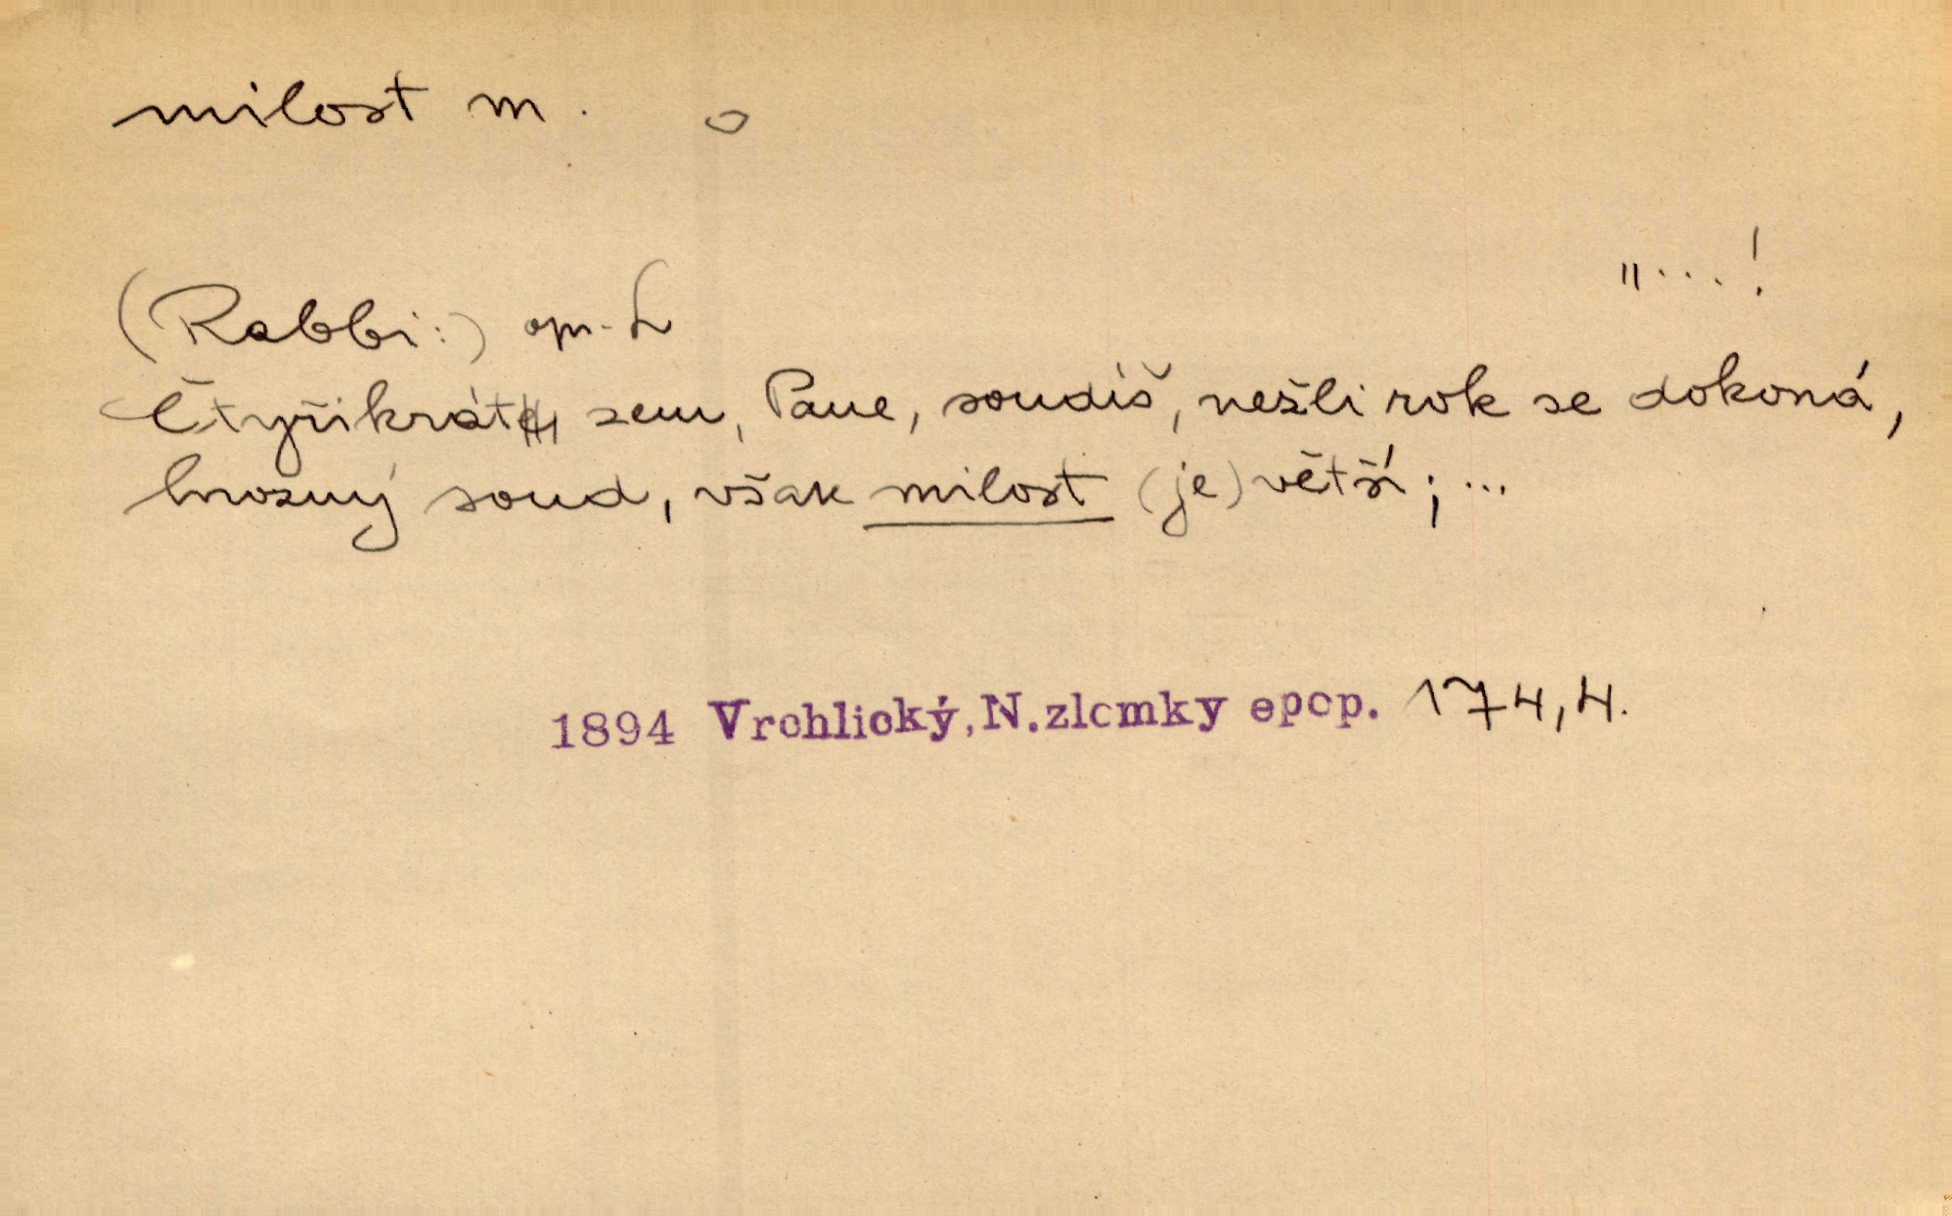 milost m. o
„ . . . !
(Rabbi:)
Čtyřikrát zem, Pane, soudíš, nežli rok se dokoná,
hrozný soud, však milost (je) větší; ...
1894 Vrchlický, N. zlomky epop. 174, 4.